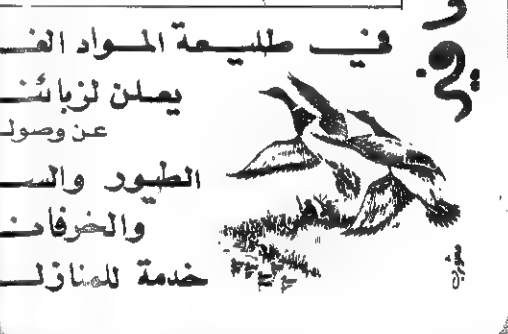 في طليعة المواد الغـ
يعلن لزبائنـ
عن وصولـ
الطيور والسـ
والخرفانـ
خدمة للمنازلـ